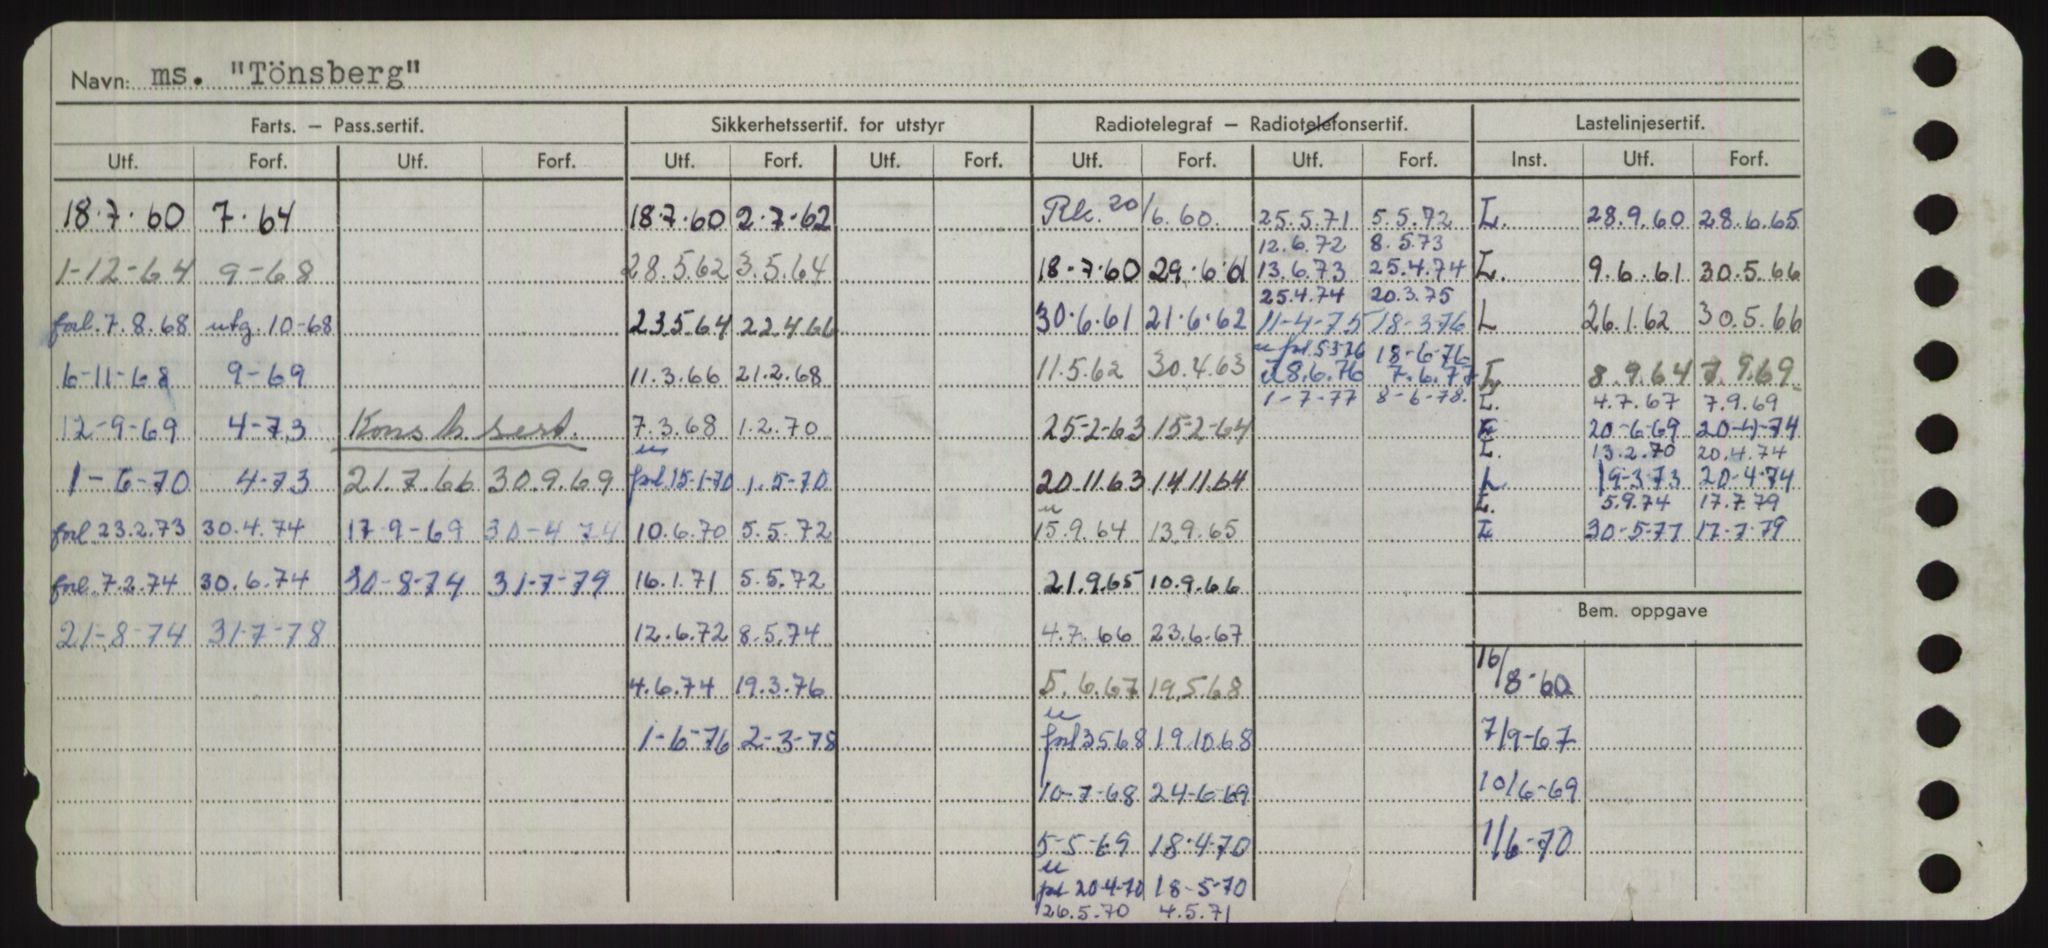 Navn: ms. "Tönsberg"
Farts. – Pass.sertif. Sikkerhetssertif. for utstyr Radiotelegraf – Radiotelefonsertif. Lastelinjesertif.
Utf. Forf. Utf. Forf. Utf. Forf. Utf. Forf. Utf. Forf. Utf. Forf. Inst. Utf. Forf.
18.7.60 7.64 18.7.60 2.7.62 Rk. 20/6.60. 25.5.71 5.5.72 L. 28.9.60 28.6.65
12.6.72 8.5.73
1-12-64 9-68 28.5.62 3.5.64 18.7.60 29.6.61 13.6.73 25.4.74 L. 9.6.61 30.5.66
25.4.74 20.3.75
forl. 7.8.68 utg. 10-68 23.5.64 22.4.66 30.6.61 21.6.62 11-4-75 18-3-76 L 26.1.62 30.5.66
u forl 5-3-76 18-6-76
6-11-68 9-69 11.3.66 21.2.68 11.5.62 30.4.63 u 8.6.76 7.6.77 L 8.9.64 7.9.69
1-7-77 8-6-78. L. 4.7.67 7.9.69
12-9-69 4-73 Konstr. sert. 7.3.68 1.2.70 25-2-63 15-2-64 L 20-6-69 20-4-74
u L. 13.2.70 20.4.74
1-6-70 4-73 21.7.66 30.9.69 forl 15-1-70 1.5-70 20.11.63 14.11.64 L 19-3-73 20-4-74
u L. 5.9.74 17.7.79
forl 23.2.73 30.4.74 17-9-69 30-4-74 10.6.70 5.5.72 15.9.64 13.9.65 L 30-5-77 17-7-79
forl. 7.2.74 30.6.74 30-8-74 31-7-79 16.1.71 5.5.72 21.9.65 10.9.66
Bem. oppgave
21-8-74 31-7-78 12.6.72 8.5.74 4.7.66 23.6.67
4.6.74 19.3.76 5.6.67 19.5.68 16/8-60
u
1-6-76 2-3-78 forl 3.5.68 19.10.68 7/9-67
10-7-68 24-6-69 10/6-69
5-5-69 18.4.70 1/6-70
u
forl 20-4-70 18-5-70
26.5.70 4.5.71